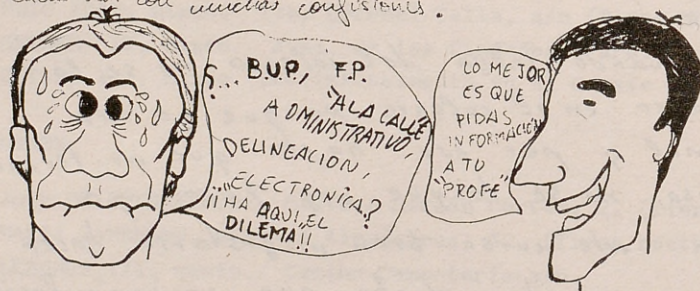 con muchas confusiones.
¿... B.U.P., F.P.
"A LA CALLE"
ADMINISTRATIVO,
DELINEACION,
...,,ELECTRONICA?
¡¡HA AQUI, EL
DILEMA!!
LO MEJOR
ES QUE
PIDAS
INFORMACIÓN
A TU
"PROFE"